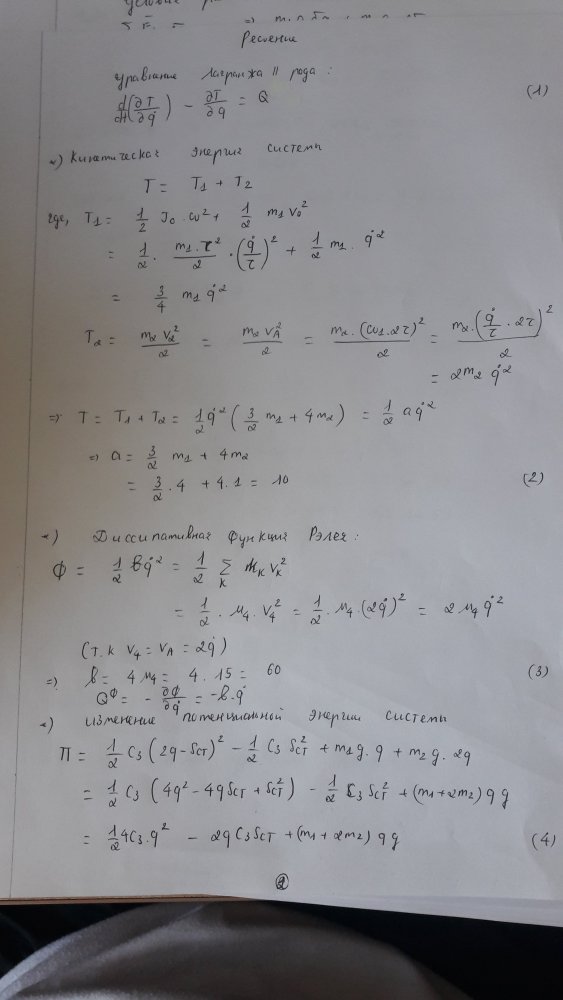 Решение
Уравнение Лагранжа II рода:
d/dt(∂T/∂q̇) − ∂T/∂q = Q (1)
*) Кинетическая Энергия системы
T = T₁ + T₂
где, T₁ = 1/2 J₀·ω² + 1/2 m₁ v₀²
= 1/2 · m₁·r²/2 · (q̇/r)² + 1/2 m₁ · q̇²
= 3/4 m₁ q̇²
T₂ = m₂ v₂²/2 = m₂ v_A²/2 = m₂·(ω₁·2r)²/2 = m₂·(q̇/r · 2r)²/2
= 2m₂ q̇²
=> T = T₁ + T₂ = 1/2 q̇² (3/2 m₁ + 4m₂) = 1/2 a q̇²
=> a = 3/2 m₁ + 4m₂
= 3/2 · 4 + 4·1 = 10 (2)
*) Диссипативная функция Рэлея:
Φ = 1/2 b q̇² = 1/2 Σ_k μ_k v_k²
= 1/2 · μ₄ · v₄² = 1/2 · μ₄·(2q̇)² = 2μ₄ q̇²
(т.к v₄ = v_A = 2q̇)
=> b = 4μ₄ = 4 · 15 = 60 (3)
Q^Φ = − ∂Φ/∂q̇ = −b·q̇
*) изменение потенциальной энергии системы
П = 1/2 C₃ (2q − δ_ст)² − 1/2 C₃ δ_ст² + m₁g·q + m₂g·2q
= 1/2 C₃ (4q² − 4q δ_ст + δ_ст²) − 1/2 C₃ δ_ст² + (m₁+2m₂) q g
= 1/2 4C₃·q² − 2q C₃ δ_ст + (m₁+2m₂) q g (4)
2